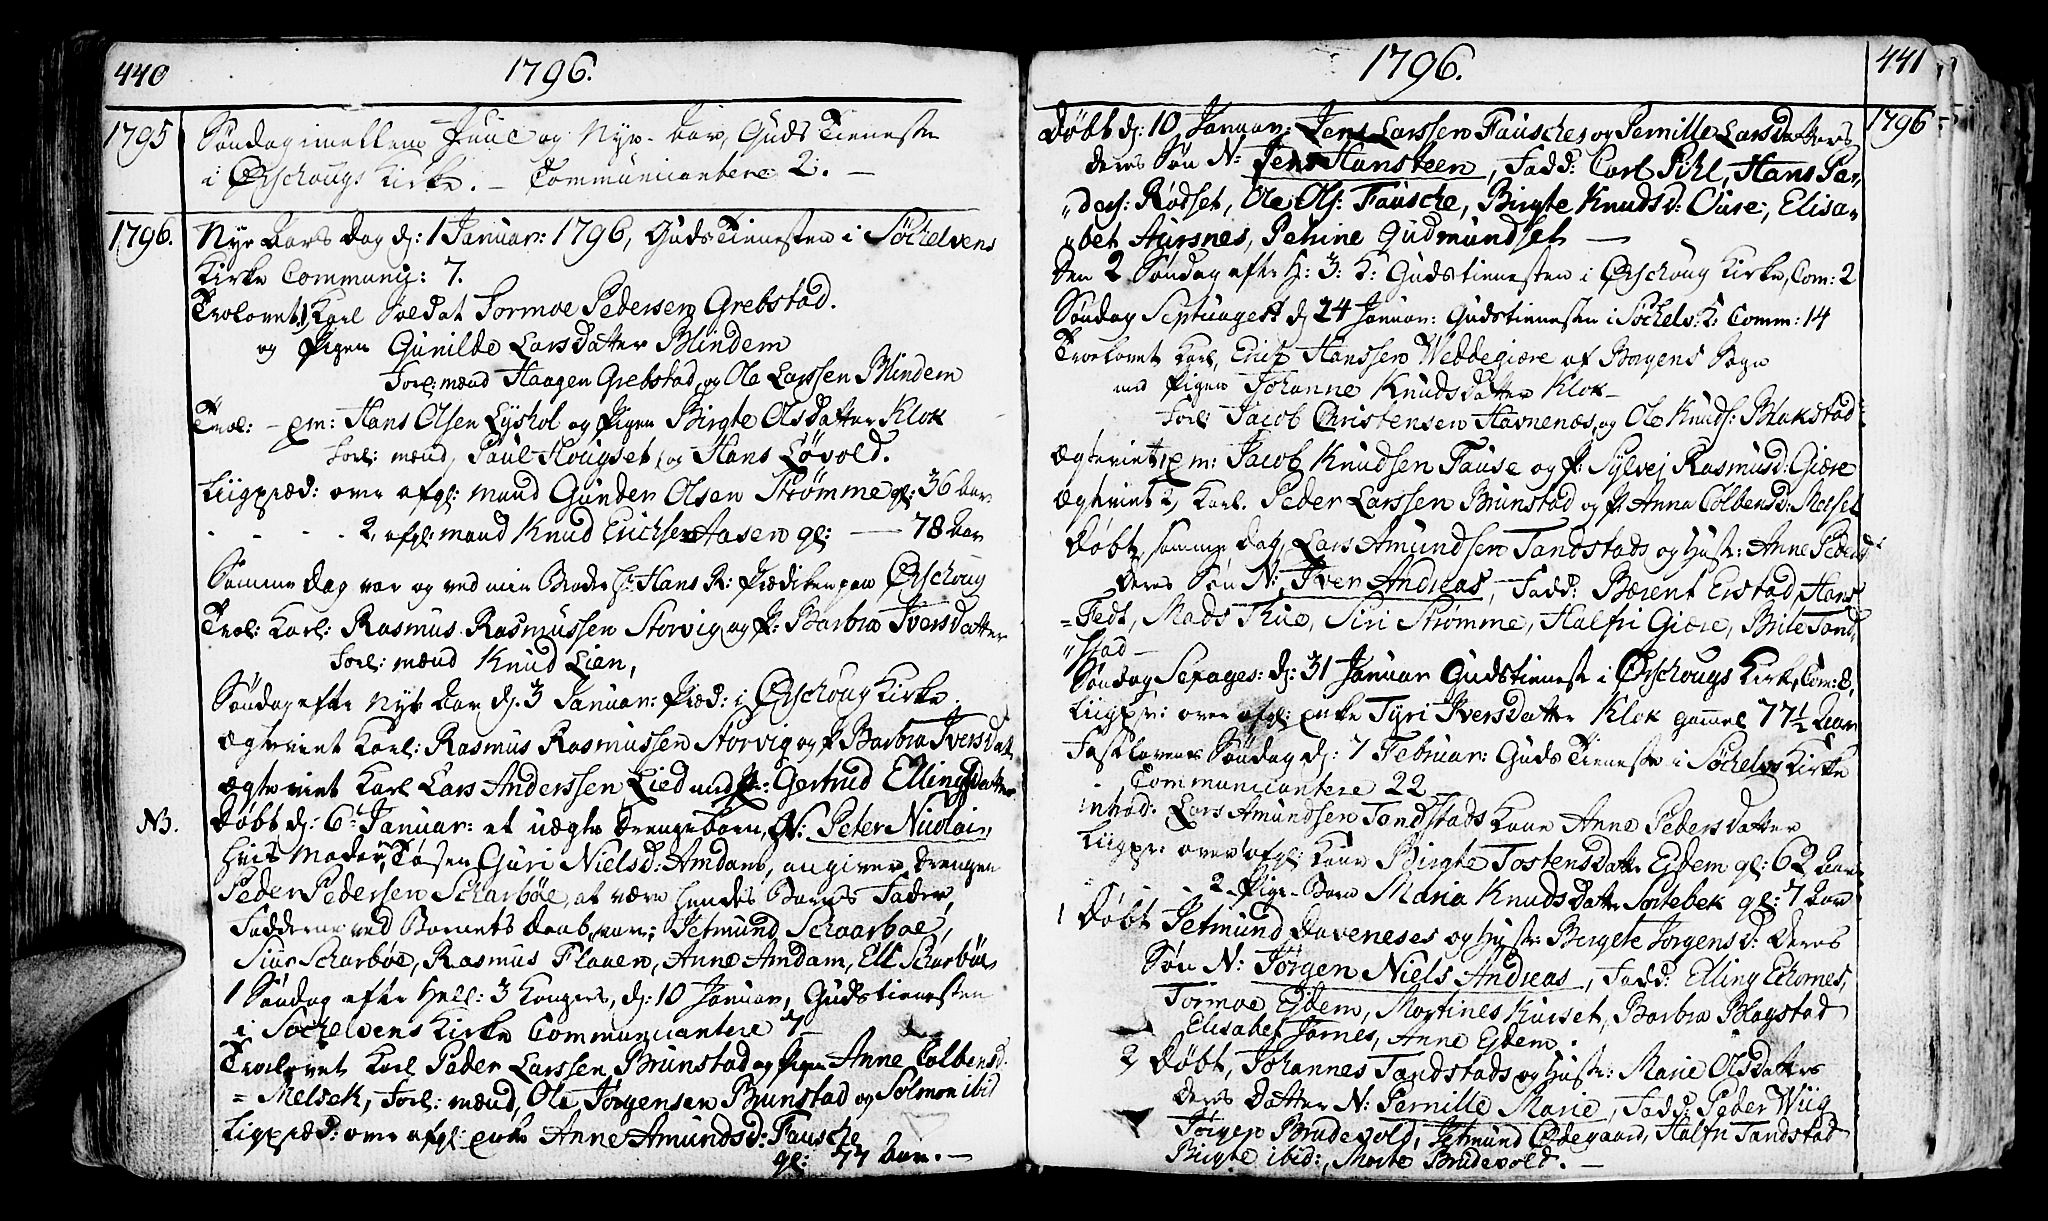 440
1796.
1795
Søndag imellem Juul og Nyt-Aar, Guds Tieneste
i Ørschougs Kirke. — Communicantere 2. —
1796.
Nyt Aars Dag d: 1 Januar: 1796, Guds Tienesten i Söchelvens
Kirke Communic: 7.
Trolovet 1, Karl Soldat Tormoe Pedersen Grebstad.
og Pigen Gunilde Larsdatter Blindem
Forl: mænd Haagen Grebstad, og Ole Larssen Blindem
Trol: - em: Hans Olsen Lyshol og Pigen Birgte Olsdatter Klok
Forl: mænd, Paul Hougset, og Hans Løvold.
Liigpræd: over afgl: mand Gunder Olsen Strømme gl: 36 Aar
2, afgl: mand Knud Erichsen Aasen gl: — 78 Aar
Samme Dag var og ved min Broder Hr Hans R: Prædiken paa Ørschoug
Trol: Karl: Rasmus Rasmussen Storvig og P: Barbra Iversdatter
Forl: mænd Knud Lien,
Søndag efter Nyt Aar d. 3 Januar: Præd: i Ørschoug Kirke.
Ægteviet Karl: Rasmus Rasmussen Storvig og P Barbra Iversdatt
Ægteviet Karl Lars Anderssen Lied med P: Gertrud Ellingsdatter
NB.
Døbt d: 6te Januar: et uægte Drengebarn, N: Peter Nicolai,
hvis Moder, Tøsen Guri Nielsd: Amdam, angiver Drengen
Peder Pedersen Scharbøe, at være hendes Barns Fader,
Fadderne ved Barnets Daab, var: Jetmund Schaarbøe,
Siur Scharbøe, Rasmus Flaaen, Anne Amdam, Ell Scharbøe
1 Søndag efter Hell: 3 Konger, d: 10 Januar, Gudstienesten
i Söchelvens Kirke Communicantere 7
Trolovet Karl Peder Larssen Brunstad og Pigen Anne Colbensd:
= Melsek, Forl: mænd, Ole Jørgensen Brunstad og Solmon ibid
Liigpræd: over afgl: enke Anne Amundsd: Fausche
gl: 77 Aar. —
1796.
441
1796
Døbt d: 10 Januar: Jens Larssen Fausches og Pernille Larsdatters
Deres Søn N: Jens Hansteen, Fadd: Carl Pihl, Hans Pe-
"ders: Rødset, Ole Ols: Fausche, Birgte Knudsd: Ouse, Elisa-
"bet Aursnes, Petrine Gudmundset —
Den 2 Søndag efter H: 3: K: Gudstienesten i Ørschoug Kirke, Com: 2
Søndag Septuages: d 24 Januar: Gudstienesten i Söchels: K: Comm: 14
Troelovet Karl, Erich Hanssen Weddegiære af Borgens Sogn
med Pigen Johanne Knudsdatter Klok —
Forl: Jacob Christensen Havnenæs, og Ole Knuds: Blakstad
Ægteviet 1, em: Jacob Knudsen Fause og P: Sylvej Rasmusd: Giære
Ægteviet 2, Karl. Peder Larssen Brunstad og P: Anna Colbensd: Melset
Døbt, samme dag, Lars Amundsen Tandstads og Hustr: Anne Pedersd:
Deres Søn N: Iver Andreas, Fadd: Bærent Erstad, Hans
=Fedt, Mads Thue, Siri Strømme, Halfri Giære, Brite Tand,
"stad —
Søndag Sexages: d: 31 Januar Gudstieneste i Ørschougs Kirke, Com: 8,
Liigpr: over afgl: enke Tyri Iversdatter Klok gammel 77½ Aar
Fastelavens Søndag d: 7 Februar: Guds Tieneste i Söchelvs Kirke
Communicantere 22 —
introd: Lars Amundsen Tandstads Kone Anne Pedersdatter
Liigpr: over afgl: Kone Birgte Tostensdatter Ejdem gl: 62 Aar
2 Pige-Barn Maria Knudsdatter Sortebek gl: 7 Aar
1 Døbt Jetmund Daveneses og Hustr: Bergete Jørgensd: Deres
Søn N: Jørgen Niels Andreas, Fadd: Elling Ekornes,
Tormoe Ejdem, Mortines Kurset, Barbra Blagstad
Elisabet Jarnes, Anne Ejdem.
2 Døbt, Johannes Tandstads og Hustr: Marie Olsdatters
Deres Datter N: Pernille Marie, Fadd: Peder Wiig
Jørgen Brudevold, Jetmund Ødegaard, Halfri Tandstad
Birgte ibid:, Marte Brudevold. —